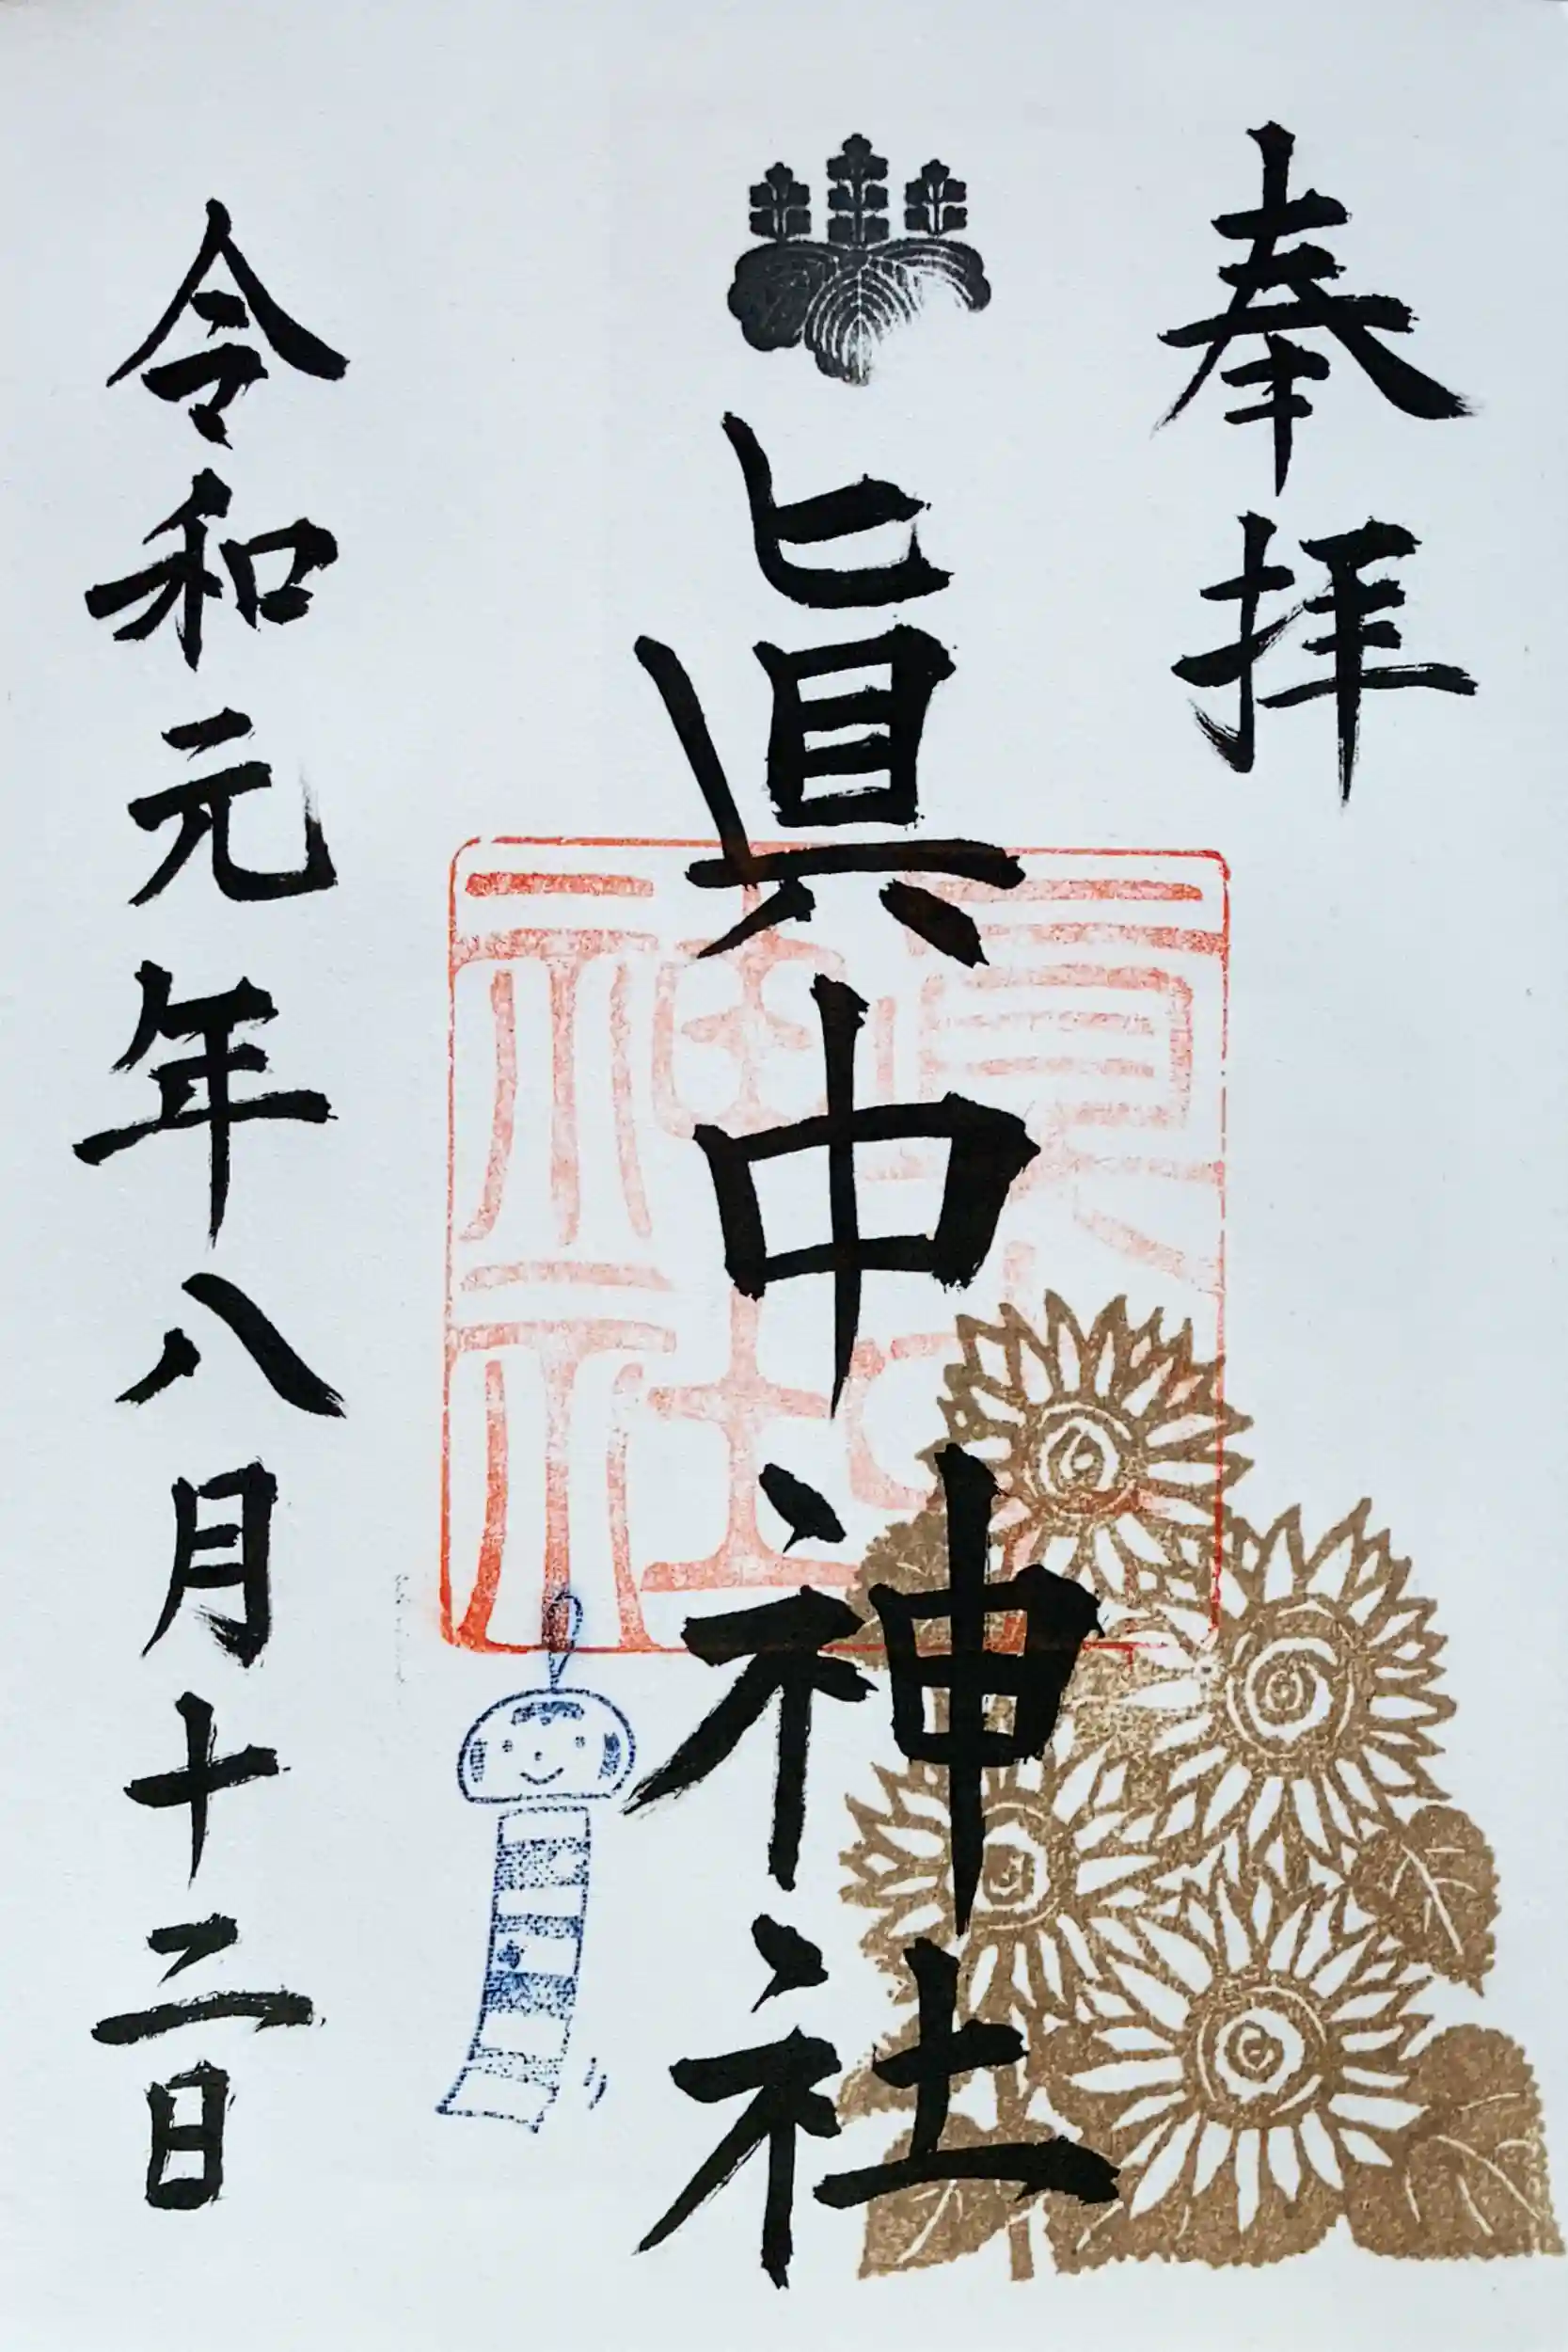 奉拝
眞中神社
令和元年八月十二日
眞中神社